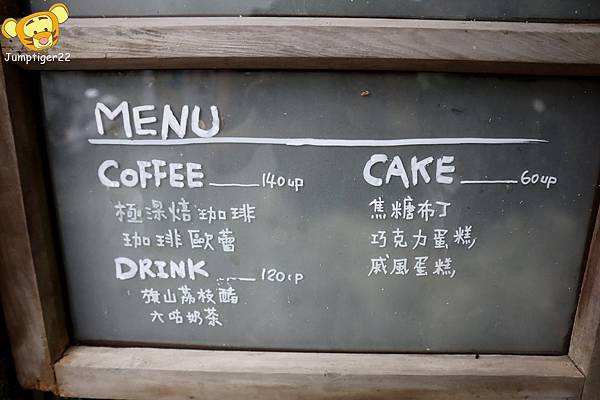 Jumptiger22
MENU
COFFEE 140up
極深焙珈琲
珈琲歐蕾
DRINK 120up
旗山荔枝醋
六咕奶茶
CAKE 60up
焦糖布丁
巧克力蛋糕
戚風蛋糕